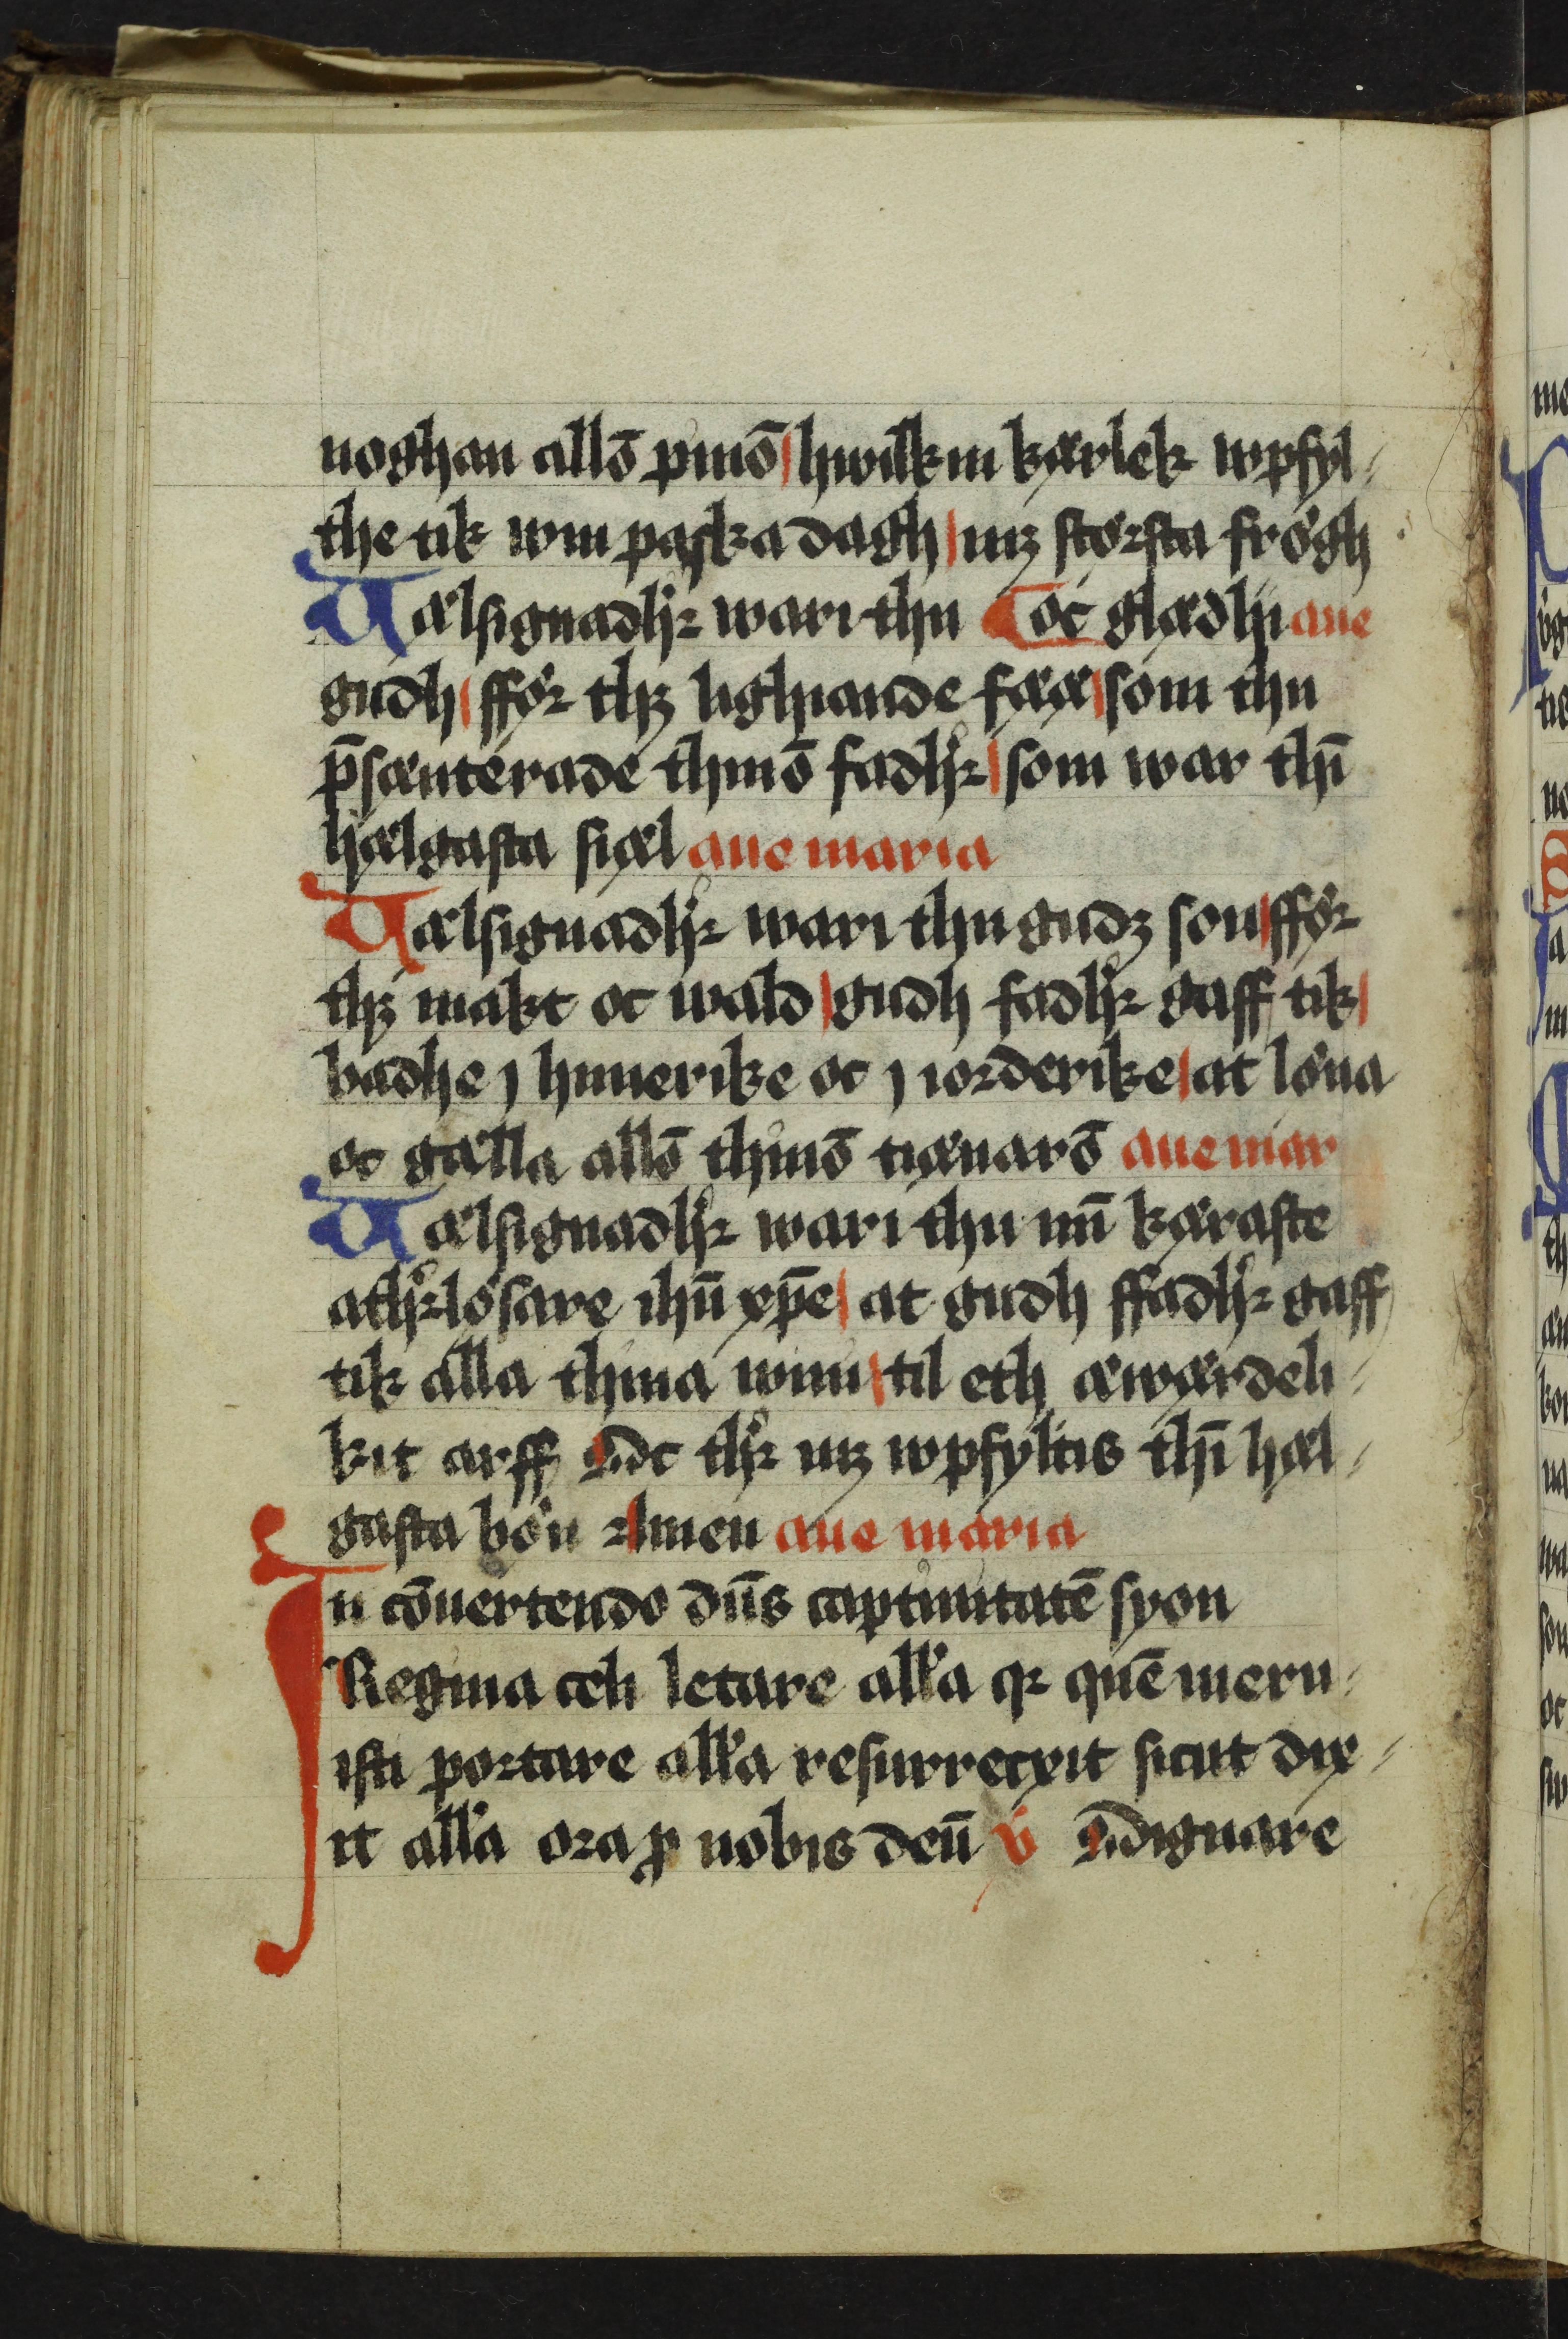 noghan allō pinō hwilkin kærlek wpfyl-
the tik wm paska dagh mz størsta frøgh
Uælsignadhr wari thu oc glædhi aue
gudh ffør thz lighiande fææ som thu
p̄sænterade thinō fadhr som war thī
hælgasta siæl aue maria
Uælsignadhr wari thu gudz son ffør
thz makt oc wald gudh fadhr gaff tik
badhe j himerike oc j iorderike at løna
oc gælla allō thinō tiænarō aue mar
Uælsignadhr wari thu mī kæraste
athrløsare ihū xp̄e at gudh ffadhr gaff
tik alla thina wini til eth æwærdeli-
kit arff Oc thr mz wpfyltis thī hæl-
gasta bøn Amen aue maria
In cōuertendo dn̄s captiuitatē syon
Regina celi letare all'a qr quē meru-
isti portare all'a resurrecxit sicut dix-
it all'a ora ꝓ nobis deū v̓ Dignare